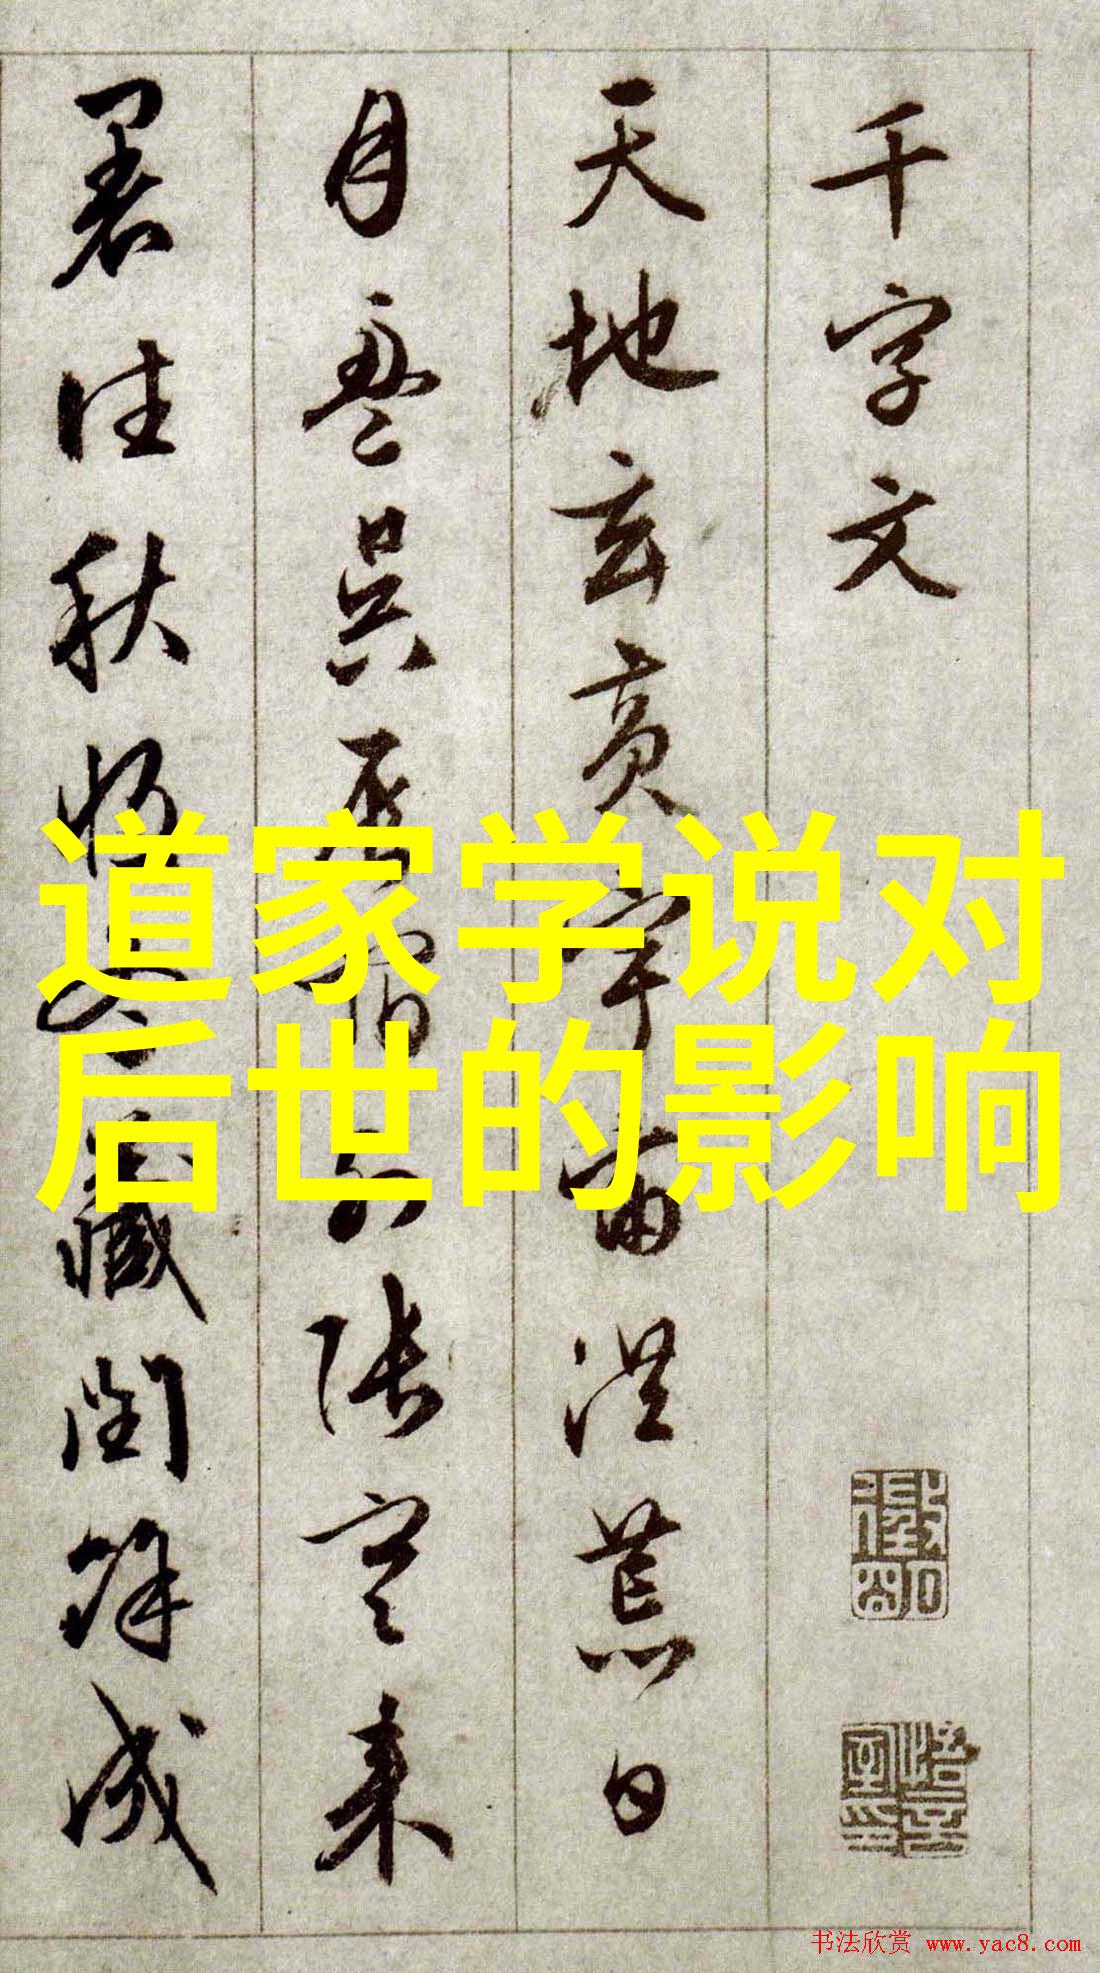 千字文
天地玄黄宇宙洪荒日
月盈昃辰宿列張寒来
暑往秋收冬藏閏餘成
道家学说对
后世的影响
书法欣赏 www.yac8.com